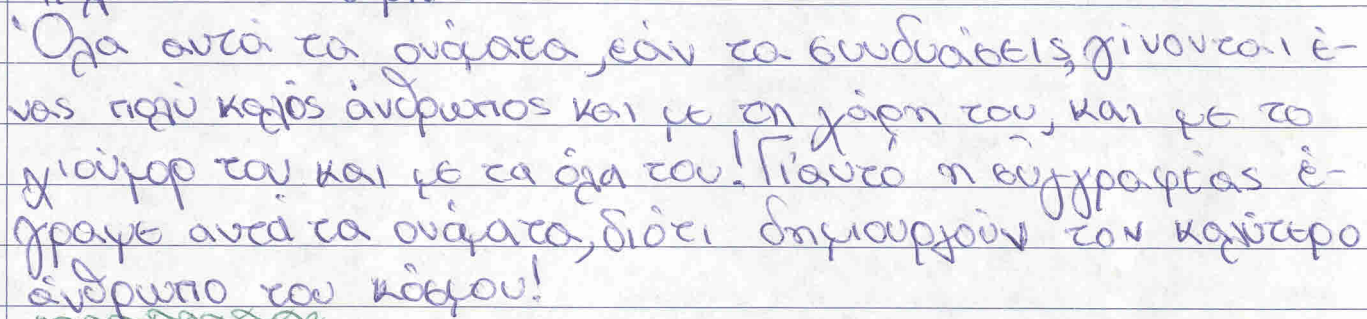 Όλα αυτά τα ονόματα, εάν τα συνδυάσεις, γίνονται έ-
νας πολύ καλός άνθρωπος και με τη χάρη του, και με το
χιούμορ του και με τα όλα του! Γι'αυτό η συγγραφέας έ-
γραψε αυτά τα ονόματα, διότι δημιουργούν τον καλύτερο
άνθρωπο του κόσμου!